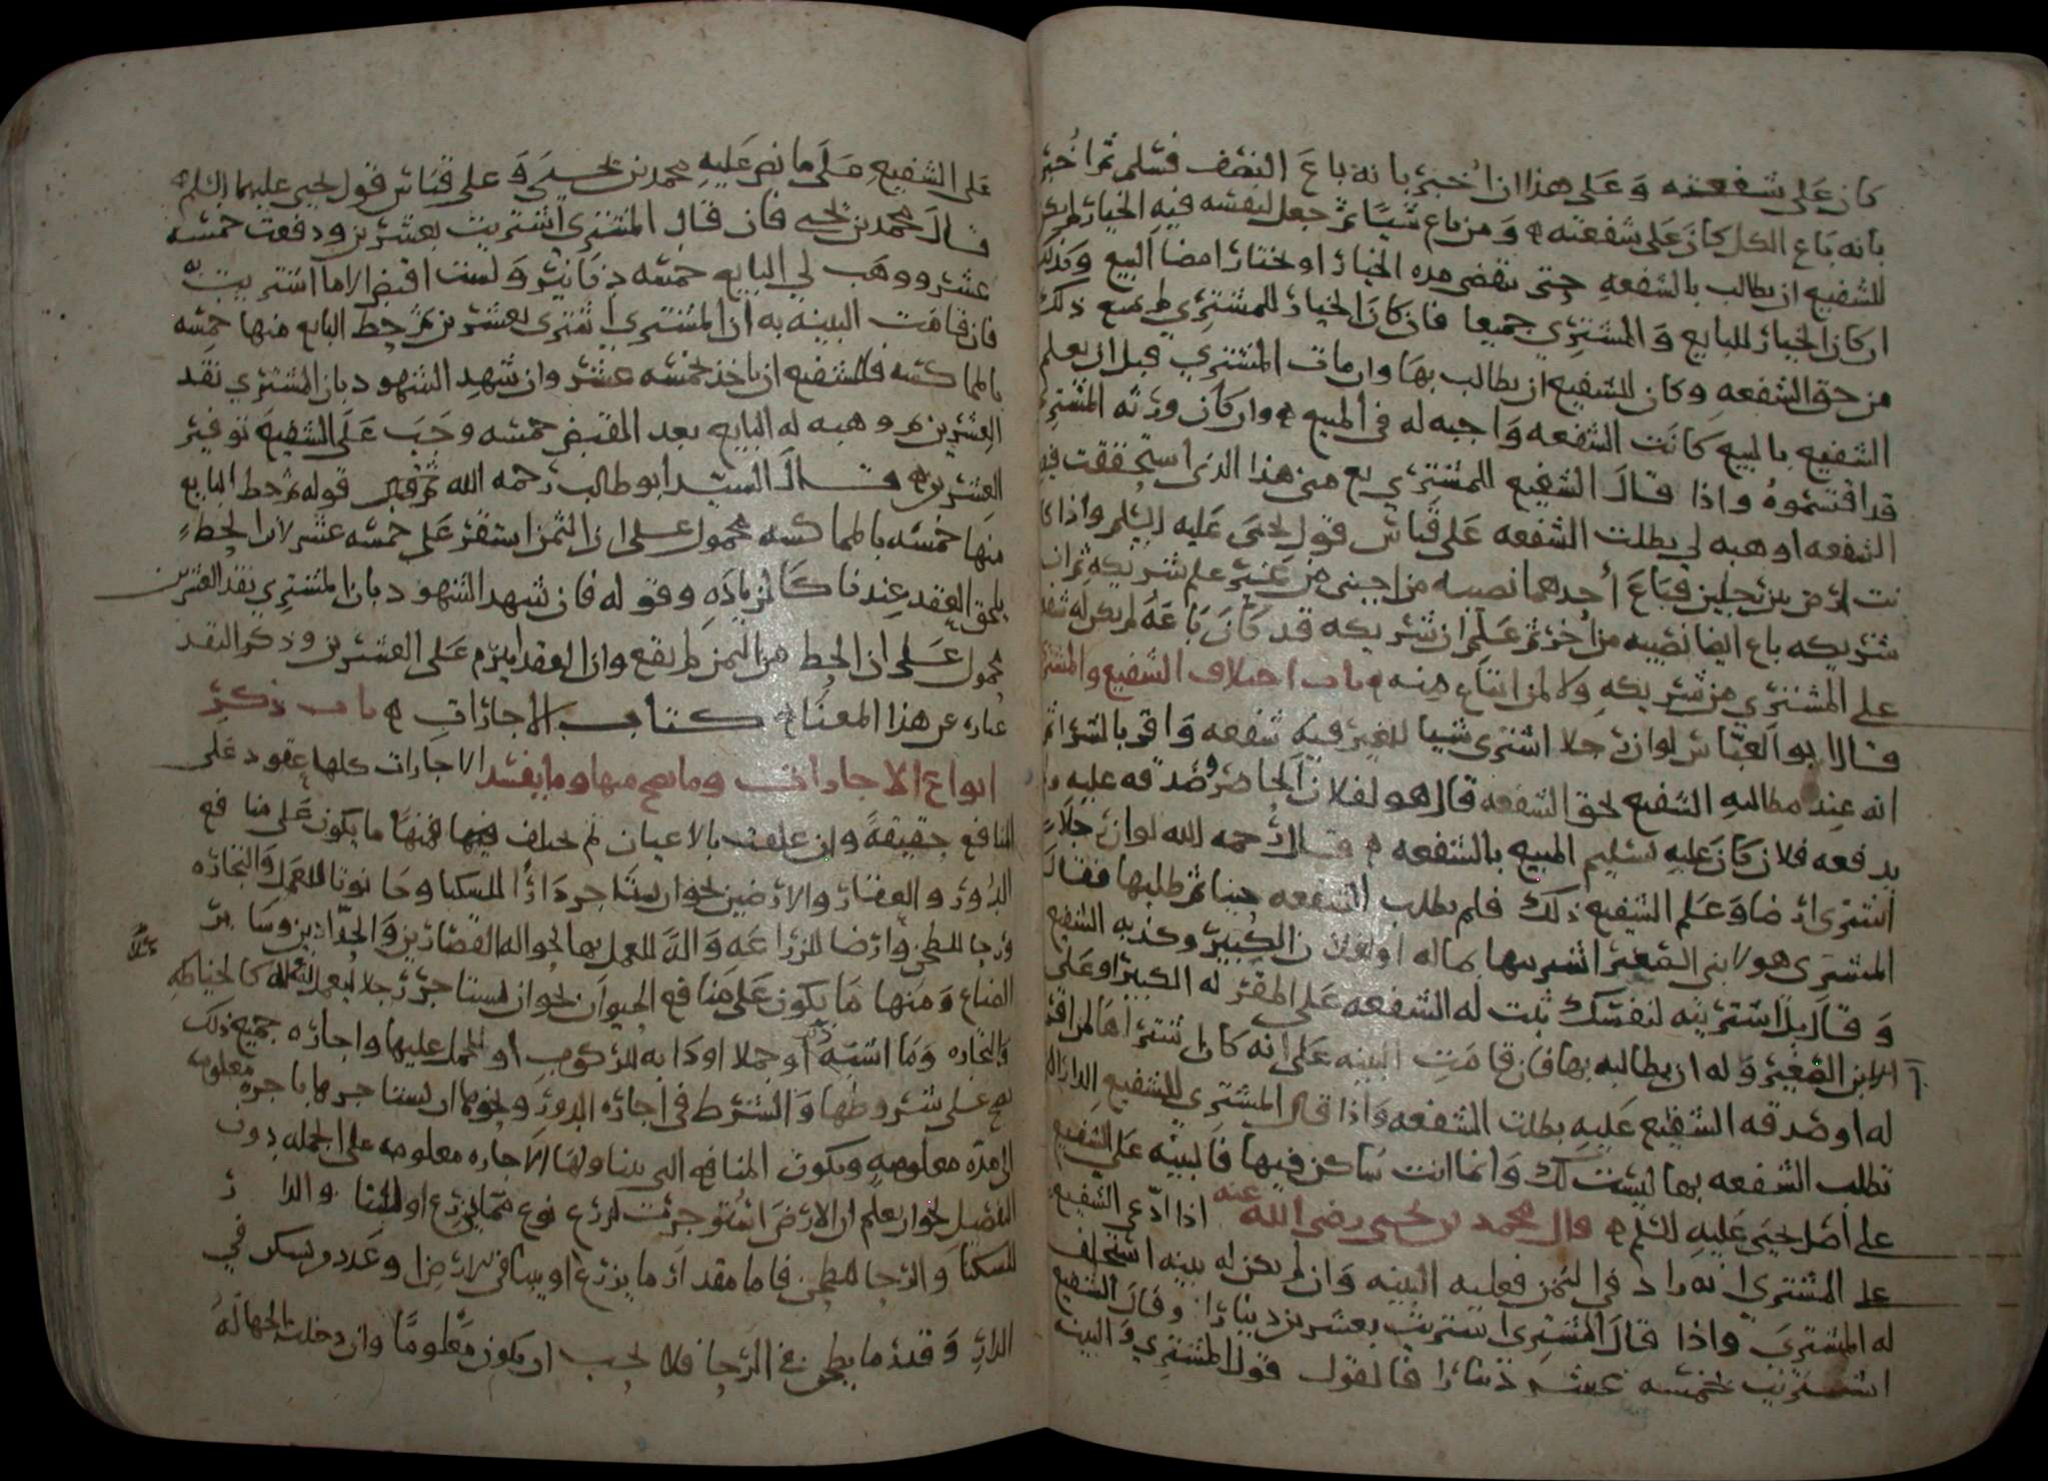 كان على شفعته وعلى هذا ان اخبر بانه باع النصف فسلم ثم اخبر
بانه باع الكل كان على شفعته ومن باع شيئا ثم جعل لنفسه فيه الخيار لم يكن
للشفيع ان يطالب بالشفعه حتى تنقضى مده الخيار او يختار امضا البيع وكذلك
ان كان الخيار للبايع والمشتري جميعا فان كان الخيار للمشتري لم يمنع ذلك
من حق الشفعه وكان للشفيع ان يطالب بها وان مات المشتري قبل ان يعلم
الشفيع بالمبيع كانت الشفعه واجبه له في المبيع وان كان ورثه المشتري
قد اقتسموه واذا قال الشفيع للمشتري بع مني هذا الذي استحققت فيه
الشفعه او هبه لي بطلت الشفعه على قياس قول يحيى عليه السلم واذا كا
نت ارض بين رجلين فباع أحدهما نصيبه من اجنبي من غير علم شريكه ثم ان
شريكه باع ايضا نصيبه من آخر ثم علم ان شريكه قد كان باعه لم يكن له شفعه
على المشتري من شريكه ولا لمن ابتاع منه باب اختلاف الشفيع والمشتري
قال ابو العباس لو ان رجلا اشترى شيا للغير فيه شفعه واقر بالشرا ثم
انه عند مطالبه الشفيع بحق الشفعه قال هو لفلان الحاضر وصدقه عليه ولم
يدفعه فلان كان عليه تسليم المبيع بالشفعه قال رحمه الله لو ان رجلاً
اشترى ارضا وعلم الشفيع ذلك فلم يطلب الشفعه حينا ثم طلبها فقال
المشترى هو لابني الصغير اشتريتها بماله او لفلان الكبير وكذبه الشفيع
وقال بل اشتريته لنفسك ثبت له الشفعه على المقر له الكبير او على
الابن الصغير وله ان يطالبه بها فان قامت البينه على انه كان شراها لمن اقر
له او صدقه الشفيع عليه بطلت الشفعه واذا قال المشتري للشفيع الدار التي
تطلب الشفعه بها ليست لك وانما انت ساكن فيها فالبينه على الشفيع
على اصل يحيى عليه السلم قال محمد بن يحيى رضي الله عنه اذا ادعى الشفيع
على المشتري انه زاد في الثمن فعليه البينه وان لم يكن له بينه استحلف
له المشتري واذا قال المشتري اشتريت بعشرين دينارا وقال الشفيع
اشتريت بخمسه عشر دينارا فالقول قول المشتري والبينه
على الشفيع على ما نص عليه محمد بن يحيى وعلى قياس قول يحيى عليهما السلم
قال محمد بن يحيى فان قال المشتري اشتريت بعشرين ودفعت خمسه
عشر ووهب لي البايع خمسه دنانير ولست اقبض الا ما اشتريت به
فان قامت البينه به ان المشتري اشترى بعشرين ثم حط البايع منها خمسه
بالمماكسه فللشفيع ان ياخذ بخمسه عشر وان شهد الشهود بان المشتري نقد
العشرين ثم وهبه له البايع بعد القبض خمسه وجب على الشفيع توفير
العشرين قال السيد ابو طالب رحمه الله قوله ثم حط البايع
منها خمسه بالمماكسه محمول على ان الثمن استقر على خمسه عشر لان الحط
يلحق العقد عندنا كالزياده وقوله فان شهد الشهود بان المشتري نقد العشرين
محمول على ان الحط من الثمن لم يقع وان العقد ابرم على العشرين وذكر النقد
عباره عن هذا المعنا كتاب الاجارات باب ذكر
انواع الاجارات وما يصح منها وما يفسد الاجارات كلها عقود على
المنافع حقيقة وان علقت بالاعيان ثم تختلف فيها فمنها ما يكون على منافع
الدور والعقار والارضين نحو ان يستاجر دارًا للسكنا وحانوتا للعمل والتجاره
ورحا للطحن وارضا للزراعه وآلة للعمل بها نحو اله القصارين والحدادين وساير
الصناع ومنها ما يكون على منافع الحيوان نحو ان يستاجر رجلا ليعمل عملا كالخياطه
والتجاره وما اشبهه او جملا او دابه للركوب او للحمل عليها واجاره جميع ذلك
يصح على شروطها والشرط في اجاره الدور ونحوها ان يستاجرها باجرة معلومه
الى مده معلومه ويكون المنافع التي يتناولها الاجاره معلومه على الجمله دون
التفصيل نحو ان يعلم ان الارض استوجرت لزرع نوع مما يزرع او للبنا والدار
للسكنا والرحا للطحن فاما مقدار ما يزرع او يبنا في الارض وعدد من يسكن في
الدار وقدر ما يطحن في الرحا فلا يجب ان يكون معلومًا وان دخلت الجهاله